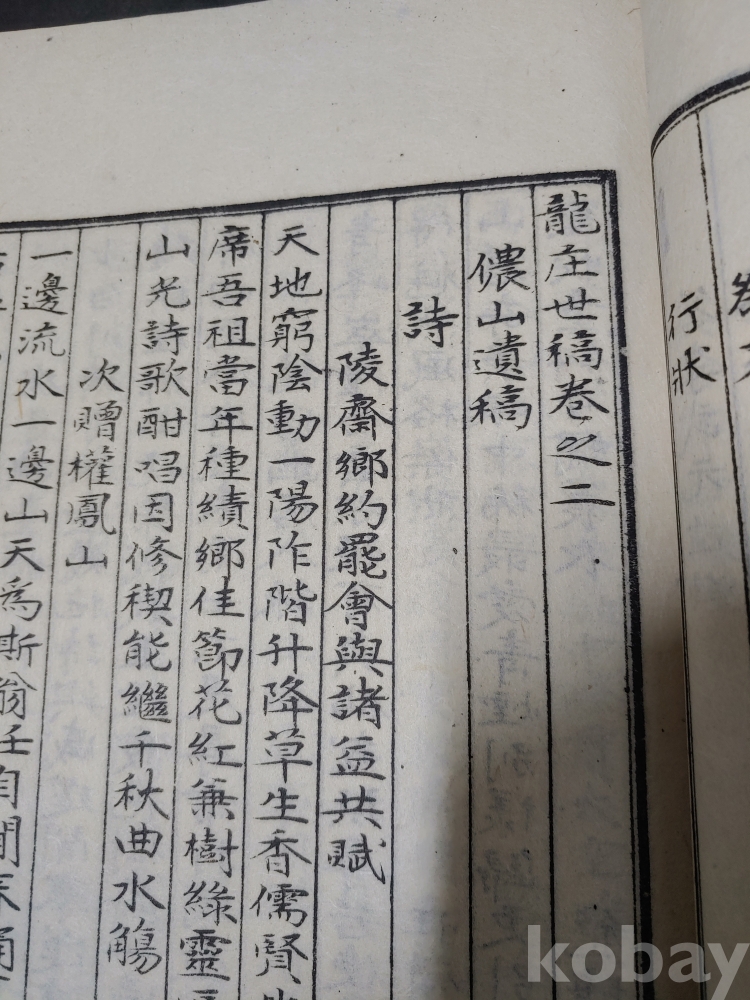 行狀
龍庄世稿卷之二
儂山遺稿
詩
陵齋鄉約罷會與諸益共賦
天地窮陰動一陽阼階升降草生香儒賢
席吾祖當年種績鄉佳節花紅兼樹綠靈
山光詩歌酣唱因修稧能繼千秋曲水觴
次贈權鳳山
一邊流水一邊山天爲斯翁任自閒
kobay